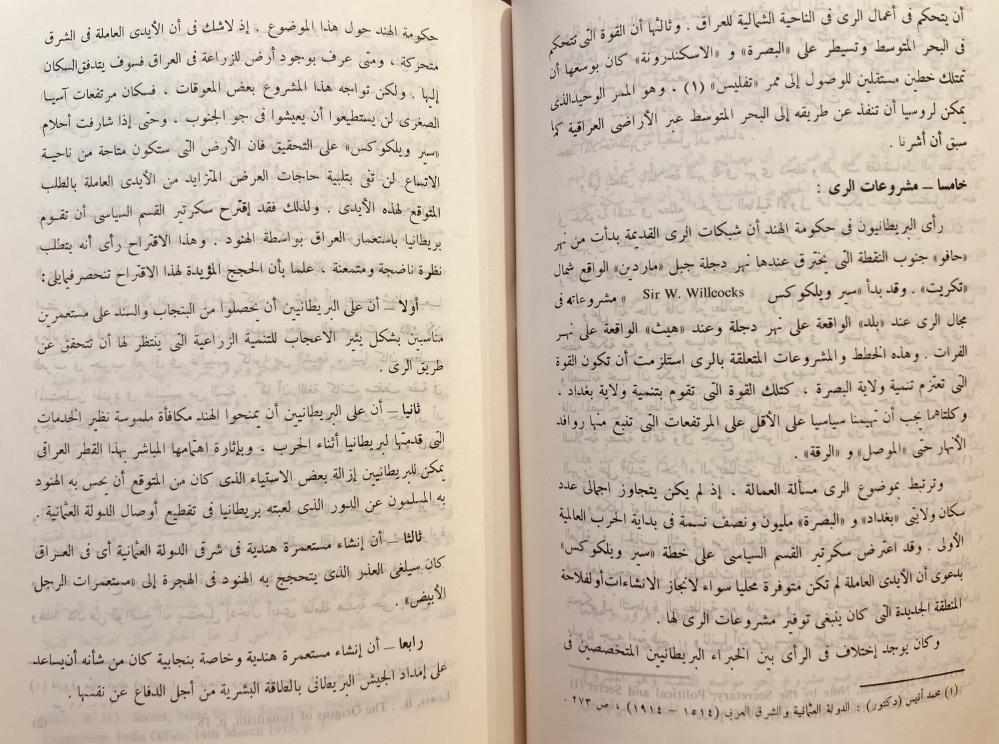 أن يتحكم فى أعمال الرى فى الناحية الشمالية للعراق . وثالثها أن القوة التى تتحكم
فى البحر المتوسط وتسيطر على «البصرة» و «الاسكندرونة» كان بوسعها أن
تمتلك خطين مستقلين للوصول إلى ممر «تفليس» (١) ، وهو الممر الوحيد الذى
يمكن لروسيا أن تنفذ عن طريقه إلى البحر المتوسط عبر الأراضى العراقية كما
سبق أن أشرنا .
خامسا ــ مشروعات الرى :
رأى البريطانيون فى حكومة الهند أن شبكات الرى القديمة بدأت من نهر
«حافو» جنوب النقطة التى يخترق عندها نهر دجلة جبل «ماردين» الواقع شمال
«تكريت» . وقد بدأ «سير ويلكوكس Sir W. Willcocks » مشروعاته فى
مجال الرى عند «بلد» الواقعة على نهر دجلة وعند «هيث» الواقعة على نهر
الفرات . وهذه الخطط والمشروعات المتعلقة بالرى استلزمت أن تكون القوة
التى تعتزم تنمية ولاية البصرة ، كتلك القوة التى تقوم بتنمية ولاية بغداد ،
وكلتاهما يجب أن تهيمنا سياسيا على الأقل على المرتفعات التى تنبع منها روافد
الأنهار حتى «الموصل» و «الرقة» .
وترتبط بموضوع الرى مسألة العمالة . إذ لم يكن يتجاوز اجمالى عدد
سكان ولايتى «بغداد» و «البصرة» مليون ونصف نسمة فى بداية الحرب العالمية
الأولى . وقد اعترض سكرتير القسم السياسى على خطة «سير ويلكوكس»
بدعوى أن الأيدى العاملة لم تكن متوفرة محليا سواء لانجاز الانشاءات أو لفلاحة
المنطقة الجديدة التى كان ينبغى توفير مشروعات الرى لها .
وكان يوجد إختلاف فى الرأى بين الخبراء البريطانيين المتخصصين فى
(١) محمد أنيس (دكتور) : الدولة العثمانية والشرق العربى (١٥١٤ – ١٩١٤) ، ص ٢٧٣ .
حكومة الهند حول هذا الموضوع . إذ لاشك فى أن الأيدى العاملة فى الشرق
متحركة ، ومتى عرف بوجود أرض للزراعة فى العراق فسوف يتدفق السكان
إليها . ولكن تواجه هذا المشروع بعض المعوقات . فسكان مرتفعات آسيا
الصغرى لن يستطيعوا أن يعيشوا فى جو الجنوب . وحتى إذا شارفت أحلام
«سير ويلكوكس» على التحقيق فان الأرض التى ستكون متاحة من ناحية
الاتساع لن تفى بتلبية حاجات العرض المتزايد من الأيدى العاملة بالطلب
المتوقع لهذه الأيدى . ولذلك فقد إقترح سكرتير القسم السياسى أن تقوم
بريطانيا باستعمار العراق بواسطة الهنود . وهذا الاقتراح رأى أنه يتطلب
نظرة ناضجة ومتمعنة ، علما بأن الحجج المؤيدة لهذا الاقتراح تنحصر فيما يلى :
أولا ــ أن على البريطانيين أن يحصلوا من البنجاب والسند على مستعمرين
مناسبين بشكل يثير الاعجاب للتنمية الزراعية التى ينتظر لها أن تتحقق عن
طريق الرى .
ثانيا ــ أن على البريطانيين أن يمنحوا الهند مكافأة ملموسة نظير الخدمات
التى قدمتها لبريطانيا أثناء الحرب . وبإثارة اهتمامها المباشر بهذا القطر العراقى
يمكن للبريطانيين إزالة بعض الاستياء الذى كان من المتوقع أن يحس به الهنود
المسلمون عن الدور الذى لعبته بريطانيا فى تقطيع أوصال الدولة العثمانية .
ثالثا ــ أن إنشاء مستعمرة هندية فى شرقى الدولة العثمانية أى فى العراق
كان سيلغى العذر الذى يتحجج به الهنود فى الهجرة إلى «مستعمرات الرجل
الأبيض» .
رابعا ــ أن إنشاء مستعمرة هندية وخاصة بنجابية كان من شأنه أن يساعد
على إمداد الجيش البريطانى بالطاقة البشرية من أجل الدفاع عن نفسها .